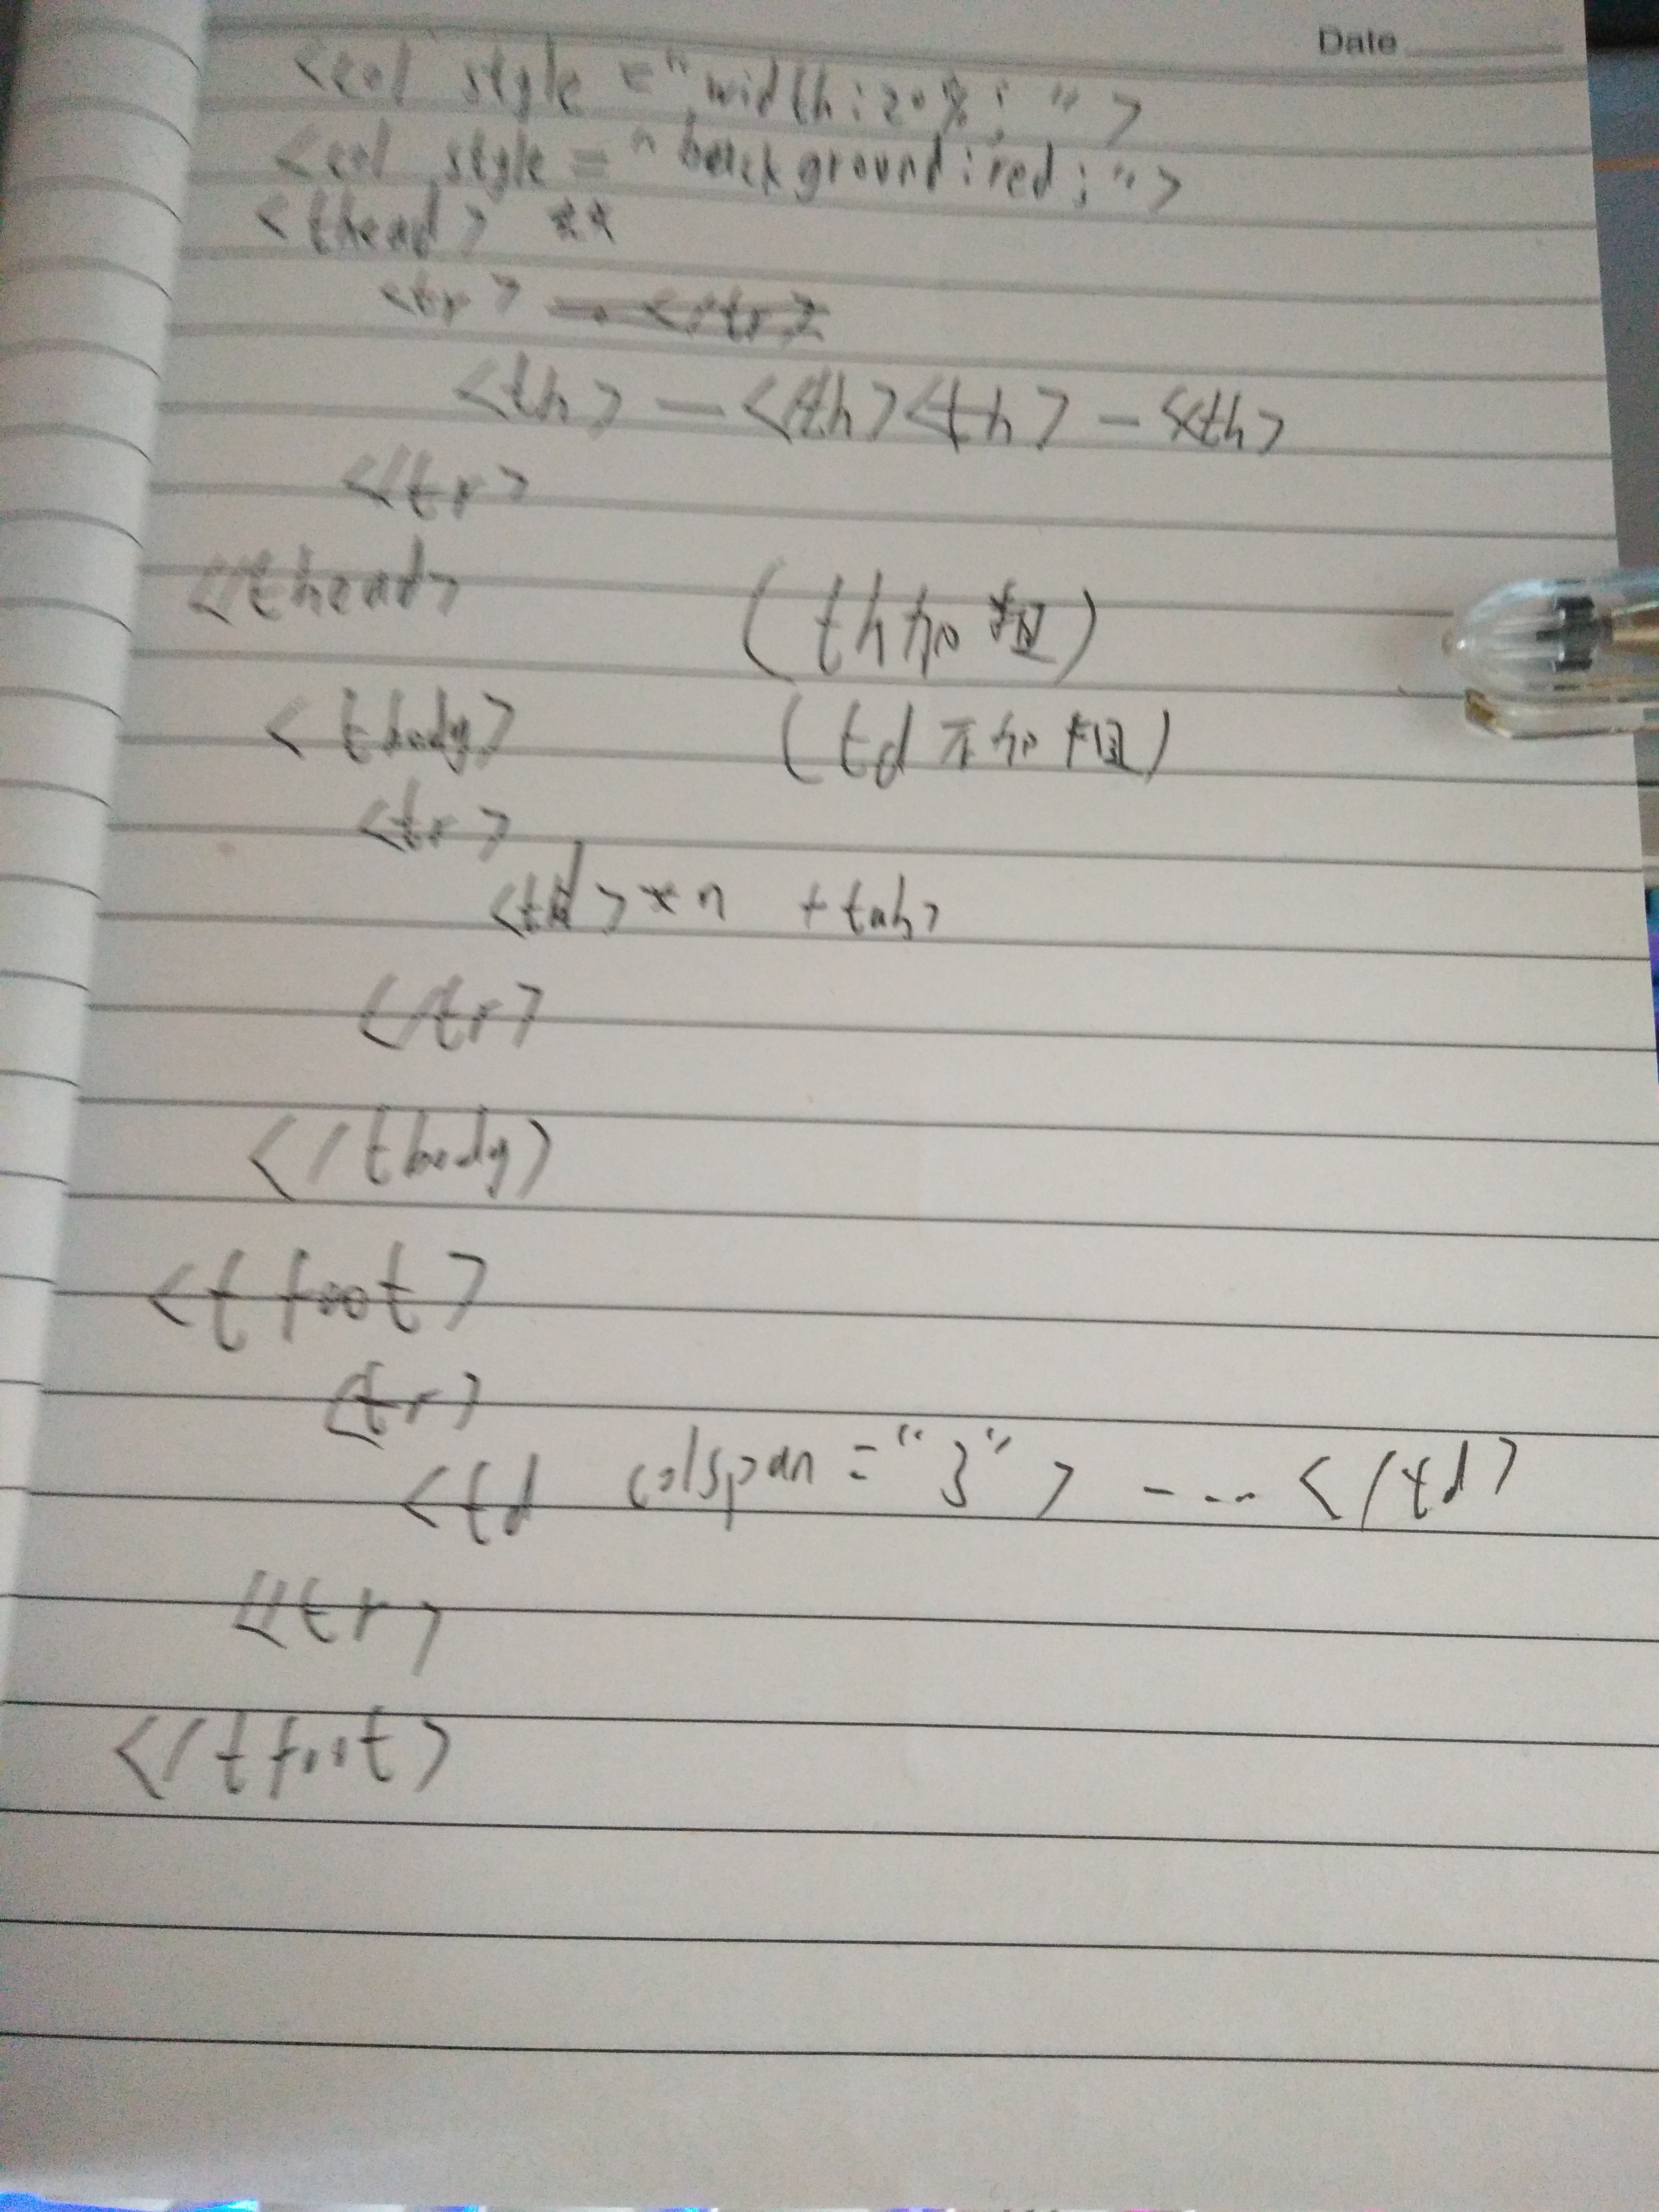 Date
<col style="width:20%;">
<col style="background:red;">
<thead> **
<tr>
<th> — </th><th> — </th>
</tr>
</thead>
(th加粗)
<tbody> (td不加粗)
<tr>
<td>*n + tab>
</tr>
</tbody>
<tfoot>
<tr>
<td colspan="3"> ---- </td>
</tr>
</tfoot>